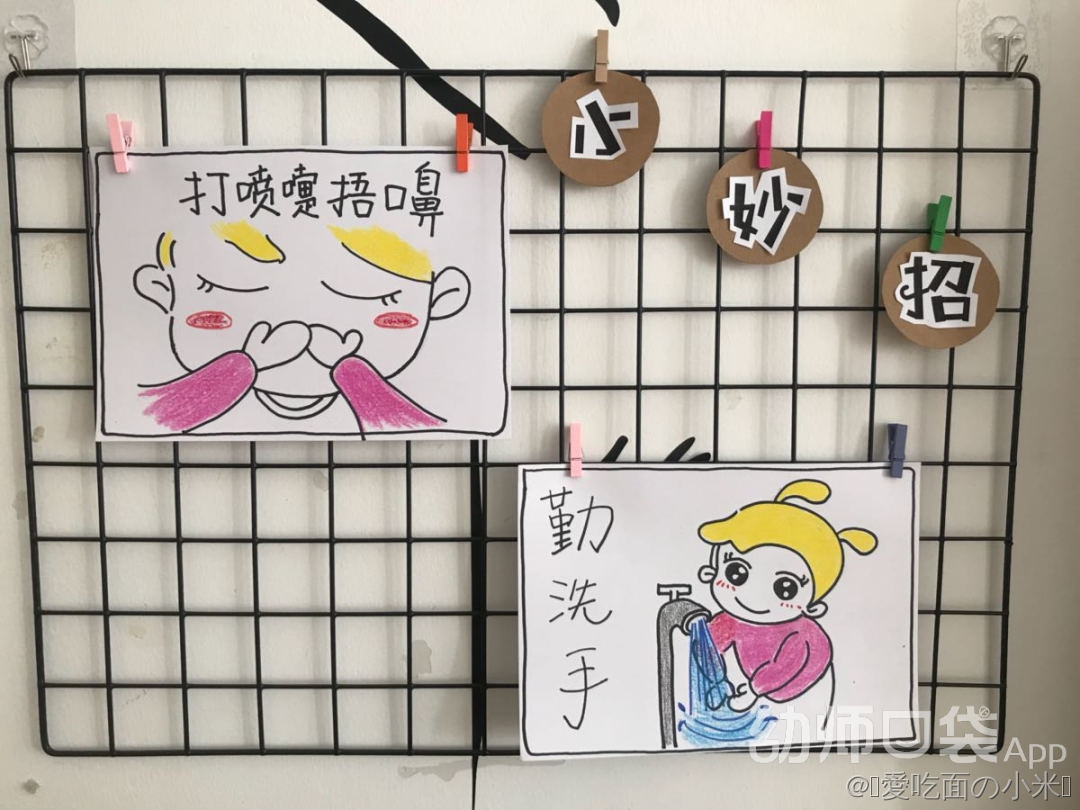 小妙招
打喷嚏捂口鼻
勤洗手
幼师口袋®
App
@愛吃面の小米